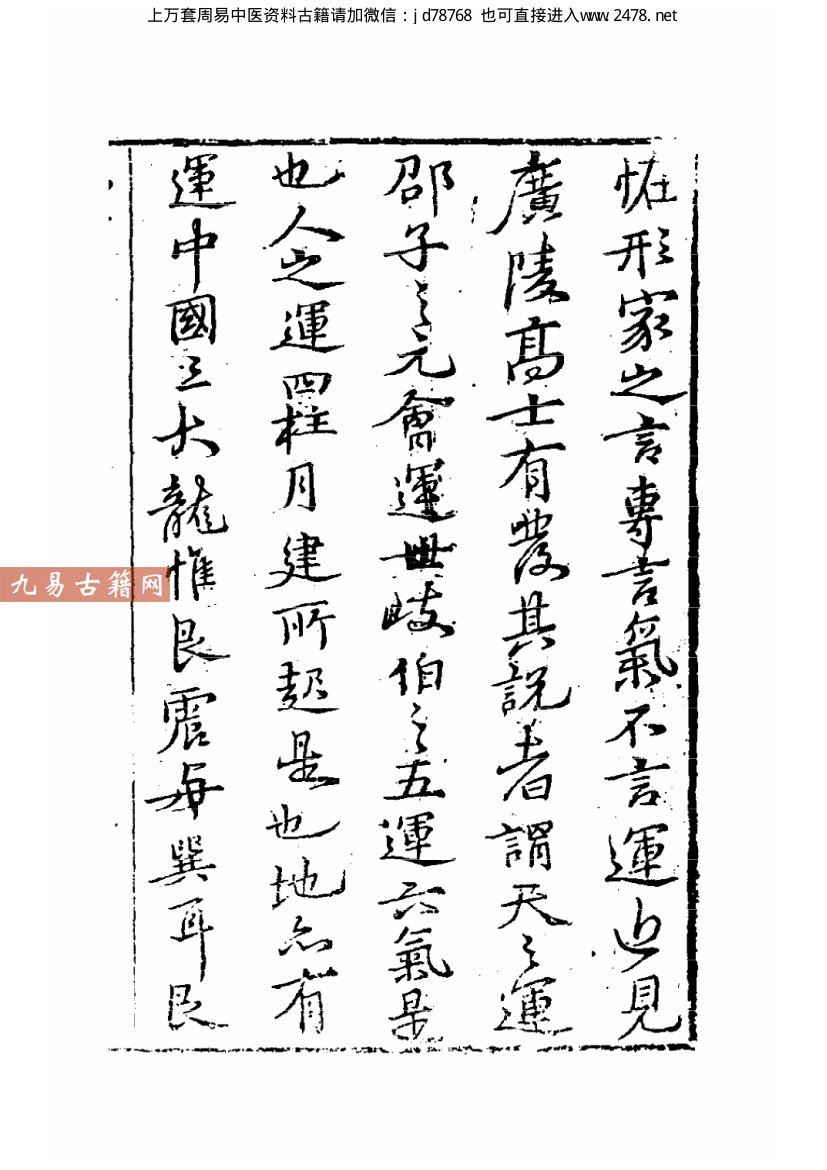 上万套周易中医资料古籍请加微信：jd78768 也可直接进入www.2478.net
怪形家之言專言氣不言運近見
廣陵高士有發其說者謂天之運
邵子之元會運世岐伯之五運六氣是
也人之運四柱月建所起是也地亦有
運中國三大龍惟艮震与巽耳艮
九易古籍网